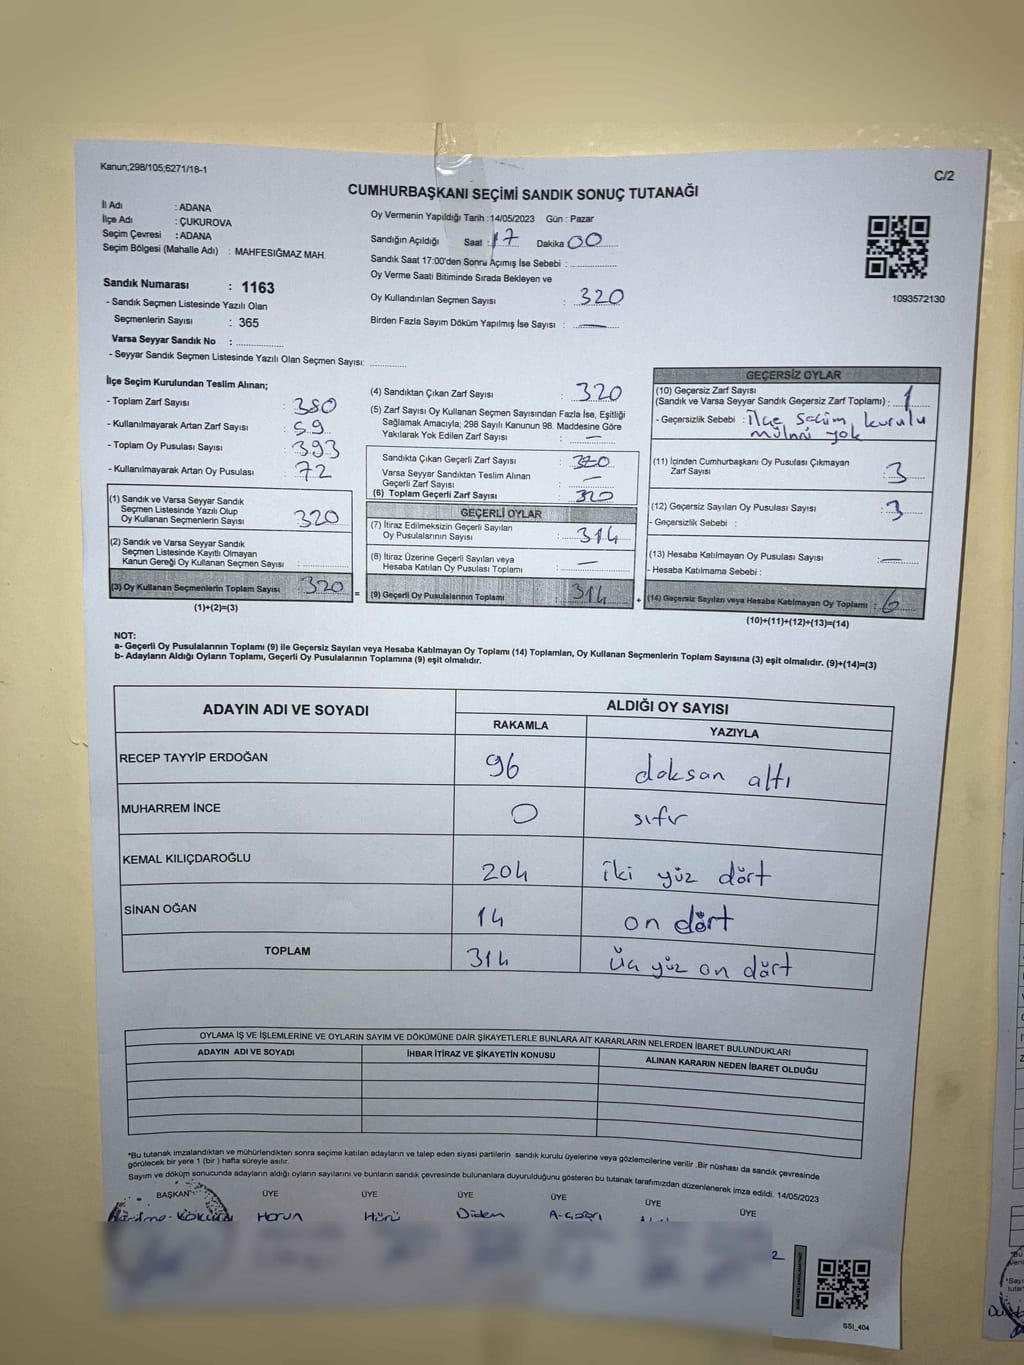 Kanun;298/105;6271/18-1
C/2
CUMHURBAŞKANI SEÇİMİ SANDIK SONUÇ TUTANAĞI
İl Adı : ADANA
İlçe Adı : ÇUKUROVA
Seçim Çevresi : ADANA
Seçim Bölgesi (Mahalle Adı) : MAHFESIĞMAZ MAH.
Oy Vermenin Yapıldığı Tarih :14/05/2023 Gün : Pazar
Sandığın Açıldığı Saat : 17 Dakika 00
Sandık Saat 17:00'den Sonra Açımış İse Sebebi :
Oy Verme Saati Bitiminde Sırada Bekleyen ve
Oy Kullandırılan Seçmen Sayısı : 320
Birden Fazla Sayım Döküm Yapılmış İse Sayısı : —
1093572130
Sandık Numarası : 1163
- Sandık Seçmen Listesinde Yazılı Olan
Seçmenlerin Sayısı : 365
Varsa Seyyar Sandık No :
- Seyyar Sandık Seçmen Listesinde Yazılı Olan Seçmen Sayısı:
İlçe Seçim Kurulundan Teslim Alınan;
- Toplam Zarf Sayısı : 380
- Kullanılmayarak Artan Zarf Sayısı : 59
- Toplam Oy Pusulası Sayısı : 393
- Kullanılmayarak Artan Oy Pusulası : 72
(1) Sandık ve Varsa Seyyar Sandık
Seçmen Listesinde Yazılı Olup
Oy Kullanan Seçmenlerin Sayısı : 320
(2) Sandık ve Varsa Seyyar Sandık
Seçmen Listesinde Kayıtlı Olmayan
Kanun Gereği Oy Kullanan Seçmen Sayısı :
(3) Oy Kullanan Seçmenlerin Toplam Sayısı : 320
(1)+(2)=(3)
=
(4) Sandıktan Çıkan Zarf Sayısı : 320
(5) Zarf Sayısı Oy Kullanan Seçmen Sayısından Fazla İse, Eşitliği
Sağlamak Amacıyla; 298 Sayılı Kanunun 98. Maddesine Göre
Yakılarak Yok Edilen Zarf Sayısı : —
Sandıkta Çıkan Geçerli Zarf Sayısı : 320
Varsa Seyyar Sandıktan Teslim Alınan
Geçerli Zarf Sayısı : —
(6) Toplam Geçerli Zarf Sayısı : 320
GEÇERLİ OYLAR
(7) İtiraz Edilmeksizin Geçerli Sayılan
Oy Pusulalarının Sayısı : 314
(8) İtiraz Üzerine Geçerli Sayılan veya
Hesaba Katılan Oy Pusulası Toplamı : —
(9) Geçerli Oy Pusulalarının Toplamı : 314
+
GEÇERSİZ OYLAR
(10) Geçersiz Zarf Sayısı
(Sandık ve Varsa Seyyar Sandık Geçersiz Zarf Toplamı) : 1
- Geçersizlik Sebebi : ilçe seçim kurulu
mührü yok
(11) İçinden Cumhurbaşkanı Oy Pusulası Çıkmayan
Zarf Sayısı : 3
(12) Geçersiz Sayılan Oy Pusulası Sayısı : 3
- Geçersizlik Sebebi :
(13) Hesaba Katılmayan Oy Pusulası Sayısı : —
- Hesaba Katılmama Sebebi :
(14) Geçersiz Sayılan veya Hesaba Katılmayan Oy Toplamı : 6
(10)+(11)+(12)+(13)=(14)
NOT:
a- Geçerli Oy Pusulalarının Toplamı (9) ile Geçersiz Sayılan veya Hesaba Katılmayan Oy Toplamı (14) Toplamları, Oy Kullanan Seçmenlerin Toplam Sayısına (3) eşit olmalıdır. (9)+(14)=(3)
b- Adayların Aldığı Oyların Toplamı, Geçerli Oy Pusulalarının Toplamına (9) eşit olmalıdır.
ADAYIN ADI VE SOYADI
ALDIĞI OY SAYISI
RAKAMLA YAZIYLA
RECEP TAYYİP ERDOĞAN 96 doksan altı
MUHARREM İNCE 0 sıfır
KEMAL KILIÇDAROĞLU 204 iki yüz dört
SİNAN OĞAN 14 on dört
TOPLAM 314 üç yüz on dört
OYLAMA İŞ VE İŞLEMLERİNE VE OYLARIN SAYIM VE DÖKÜMÜNE DAİR ŞİKAYETLERLE BUNLARA AİT KARARLARIN NELERDEN İBARET BULUNDUKLARI
ADAYIN ADI VE SOYADI İHBAR İTİRAZ VE ŞİKAYETİN KONUSU ALINAN KARARIN NEDEN İBARET OLDUĞU
*Bu tutanak imzalandıktan ve mühürlendikten sonra seçime katılan adayların ve talep eden siyasi partilerin sandık kurulu üyelerine veya gözlemcilerine verilir .Bir nüshası da sandık çevresinde
görülecek bir yere 1 (bir ) hafta süreyle asılır.
Sayım ve döküm sonucunda adayların aldığı oyların sayılarını ve bunların sandık çevresinde bulunanlara duyurulduğunu gösteren bu tutanak tarafımızdan düzenlenerek imza edildi. 14/05/2023
BAŞKAN ÜYE ÜYE ÜYE ÜYE ÜYE ÜYE
Harun Hürü Didem
2
SSI_404